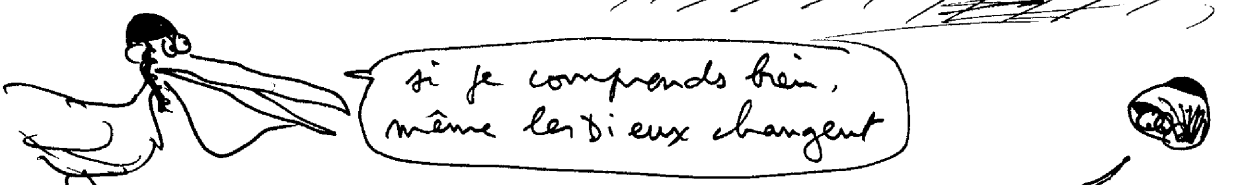 si je comprends bien,
même les Dieux changent